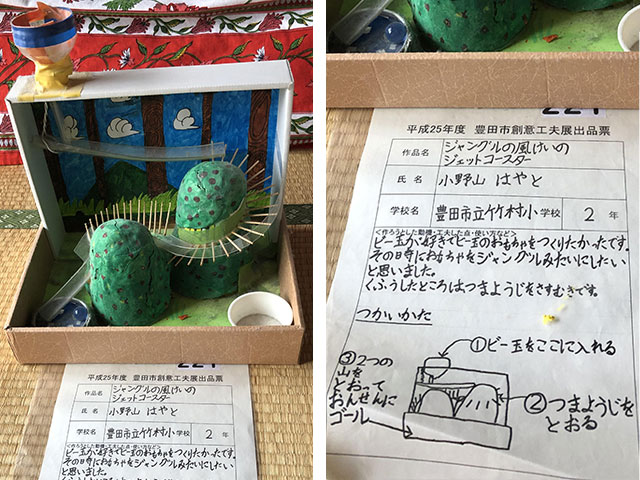 平成25年度 豊田市創意工夫展出品票
作品名
ジャングルの風けいの
ジェットコースター
氏名
小野山 はやと
学校名
豊田市立竹村小学校
2年
<作ろうとした動機・工夫した点・使い方など>
ビー玉が好きでビー玉のおもちゃをつくりたかったです。
その日寺におもちゃをジャングルみたいにしたい
と思いました。
221
平成25年度 豊田市創意工夫展出品票
作品名
ジャングルの風けいの
ジェットコースター
氏名
小野山 はやと
学校名
豊田市立竹村小学校
2年
<作ろうとした動機・工夫した点・使い方など>
ビー玉が好きでビー玉のおもちゃをつくりたかったです。
その日寺におもちゃをジャングルみたいにしたい
と思いました。
くふうしたところはつまようじをさすむきです。
つかいかた
①ビー玉をここに入れる
②つまようじを
とおる
③2つの
山を
とおって
おんせんに
ゴール